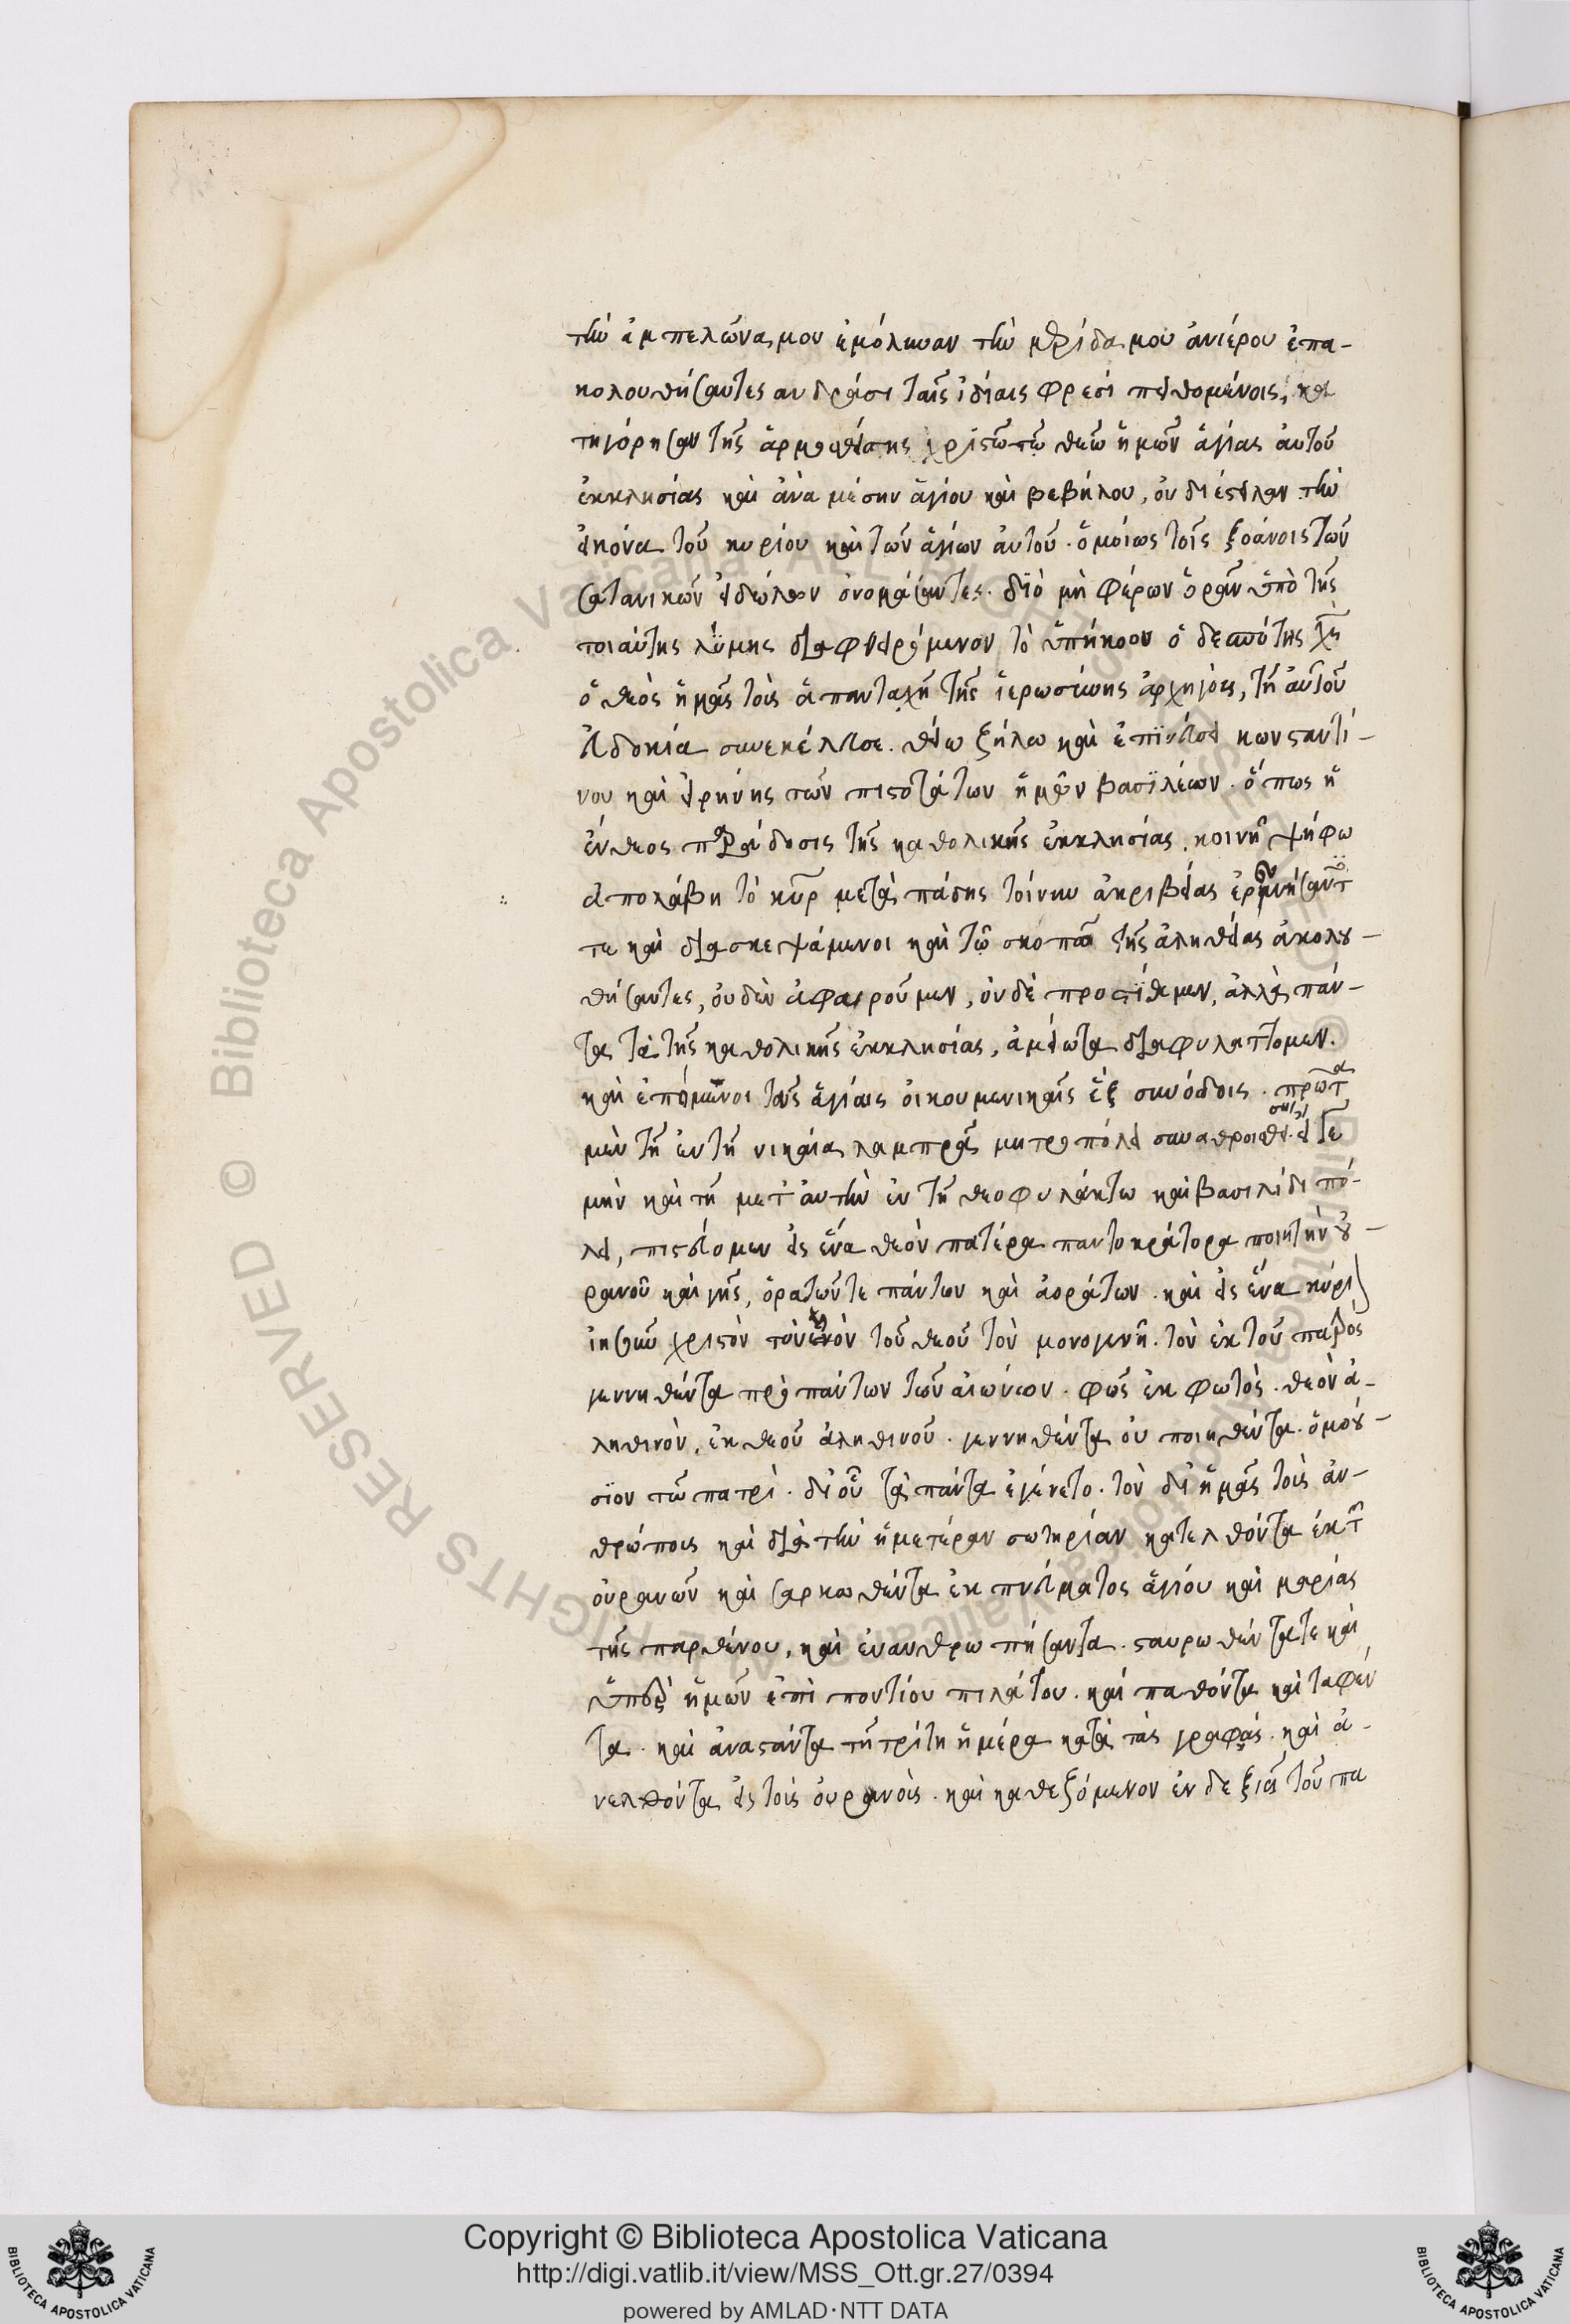 τὴν ἀμπελῶνα μου ἐμόλυναν τὴν μερίδα μου ἀνιέρου ἐπα-
κολουθήσαντες ανδράσι ταῖς ἰδίαις φρεσὶ πειθομένοις, κα
τηγόρησαν τῆς ἁρμοσθείσης χριστῶ τῶ θεῶ ἡμῶν ἁγίας ἀυτοῦ
ἐκκλησίας καὶ ἀνὰ μέσην ἁγίου καὶ βεβήλου, ὀυ διέστειλαν τὴν
ἐικόνα τοῦ κυρίου καὶ τῶν ἁγίων ἀυτοῦ. ὁμοίως τοῖς ξοάνοις τῶν
σατανικῶν ἐιδώλων ὀνομάσαντες. διὸ μὴ φέρων ὁρᾶν ὑπὸ τῆς
τοιαύτης λύμης διαφθειρόμενον τὸ ὑπήκοον ὁ δεσπότης
ὁ θεὸς ἡμᾶς τοὺς ἁπανταχῆ τῆς ἱερωσύνης ἀρχηγοὺς, τῆ ἀυτοῦ
ἐυδοκία συνεκέλευσε. θείω ζήλω καὶ ἐπινεύσει κωνσταντί-
νου καὶ ἐιρήνης τῶν πιστοτάτων ἡμῶν βασιλέων. ὅπως ἡ
ἔνθεος παράδοσις τῆς καθολικῆς ἐκκλησίας, κοινῆ ψήφω
ἀπολάβη τὸ κῦρ μετὰ πάσης τοίνυν ἀκριβείας ἐρευνήσαντ
τε καὶ διασκεψάμενοι καὶ τῶ σκοπῶ τῆς ἀληθείας ἀκολου-
θήσαντες, ὀυδὲν ἀφαιροῦμεν, ὀυδὲ προστίθεμεν, ἀλλὰ πάν-
τα τὰ τῆς καθολικῆς ἐκκλησίας, ἀμείωτα διαφυλάττομεν.
καὶ ἑπόμενοι ταῖς ἁγίαις ὀικουμενικαῖς ἓξ συνόδοις. πρῶτα
μὲν τῆ ἐν τῆ νικαία λαμπρᾶ μητροπόλει συναθροισθείση ἔτι γε
μὴν καὶ τῆ μετ' ἀυτὴν ἐν τῆ θεοφυλάκτω καὶ βασιλίδι πό-
λει, πιστεύομεν ἐις ἕνα θεὸν πατέρα παντοκράτορα ποιητὴν ὀυ-
ρανοῦ καὶ γῆς, ὁρατῶν τε πάντων καὶ ἀοράτων. καὶ ἐις ἕνα κύρι
ἰησοῦν χριστὸν τὸν υἱὸν τοῦ θεοῦ τὸν μονογενῆ. τὸν ἐκ τοῦ πατρὸς
γεννηθέντα πρὸ πάντων τῶν ἀιώνων. φῶς ἐκ φωτὸς. θεὸν ἀ-
ληθινὸν, ἐκ θεοῦ ἀληθινοῦ. γεννηθέντα ὀυ ποιηθέντα. ὁμοού-
σιον τῶ πατρὶ. δι' ὁῦ τὰ πάντα ἐγένετο. τὸν δι' ἡμᾶς τοὺς ἀν-
θρώπους καὶ διὰ τὴν ἡμετέραν σωτηρίαν κατελθόντα ἐκ τ
ὀυρανῶν καὶ σαρκωθέντα ἐκ πνεύματος ἁγίου καὶ μαρίας
τῆς παρθένου, καὶ ἐνανθρωπήσαντα. σταυρωθέντα τε καὶ
ὑπὲρ ἡμῶν ἐπὶ ποντίου πιλάτου. καὶ παθόντα καὶ ταφέν
τα. καὶ ἀναστάντα τῆ τρίτη ἡμέρα κατὰ τὰς γραφάς. καὶ ἀ-
νελθόντα ἐις τοὺς ὀυρανοὺς. καὶ καθεζόμενον ἐν δεξιᾶ τοῦ πα
Copyright © Biblioteca Apostolica Vaticana
http://digi.vatlib.it/view/MSS_Ott.gr.27/0394
powered by AMLAD·NTT DATA